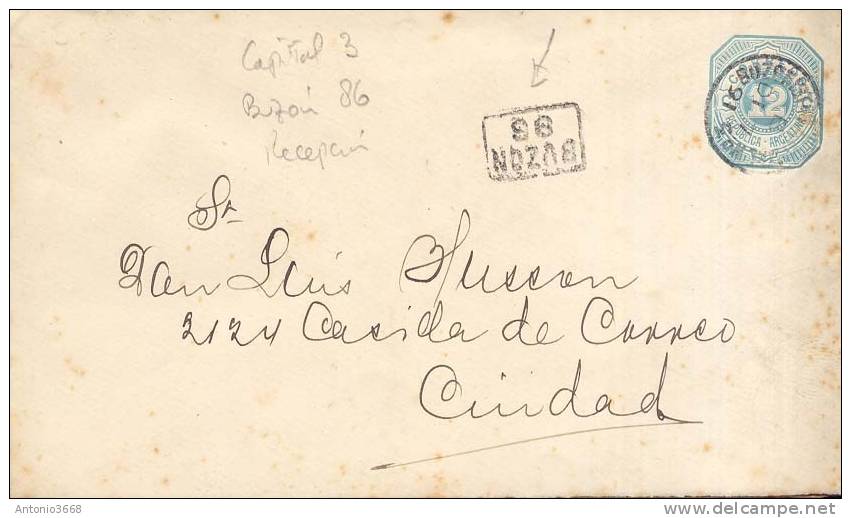 Capital 3
Buzón 86
Recepción
BUZON
86
12
REPUBLICA · ARGENTINA
Sr
Don Luis Husson
2124 Casida de Correo
Ciudad
Antonio3668
www.delcampe.net